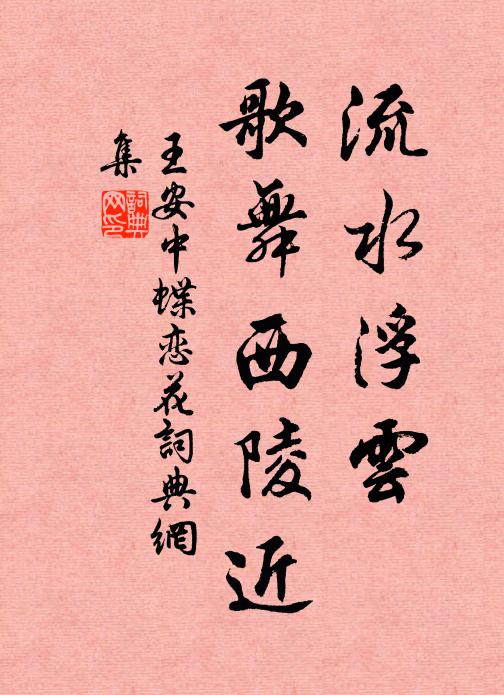 流水浮雲
歌舞西陵近
王安中蝶恋花詞典網
集
詞典
网印